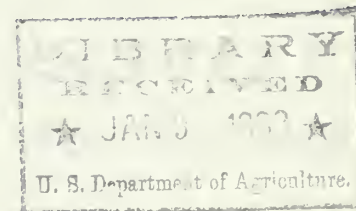 LIBRARY
RECEIVED
★ JAN 3 ★
U. S. Department of Agriculture.